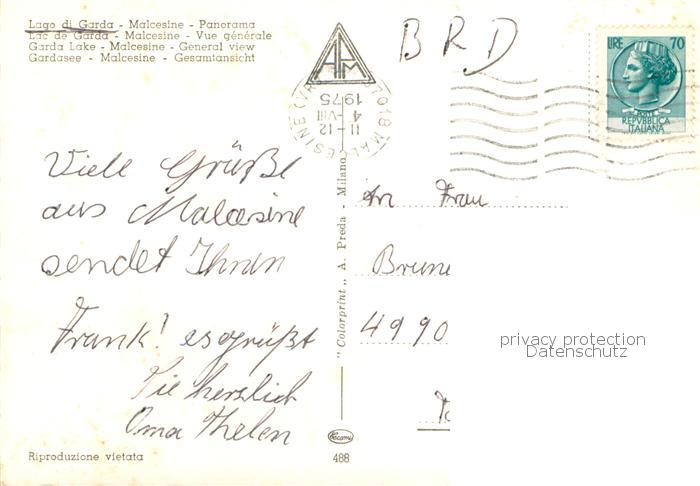 Lago di Garda - Malcesine - Panorama
Lac de Garda - Malcesine - Vue générale
Garda Lake - Malcesine - General view
Gardasee - Malcesine - Gesamtansicht
APM
BRD
LIRE 70
REPVBBLICA
ITALIANA
MALCESINE (VR)
11-12
4-VIII
1975
Viele Grüße
aus Malcesine
sendet Ihnen
Frank! es grüßt
Sie herzlich
Oma Thelen
"Colorprint" A. Preda - Milano
An Frau
Brune
4990
privacy protection
Datenschutz
Riproduzione vietata
488